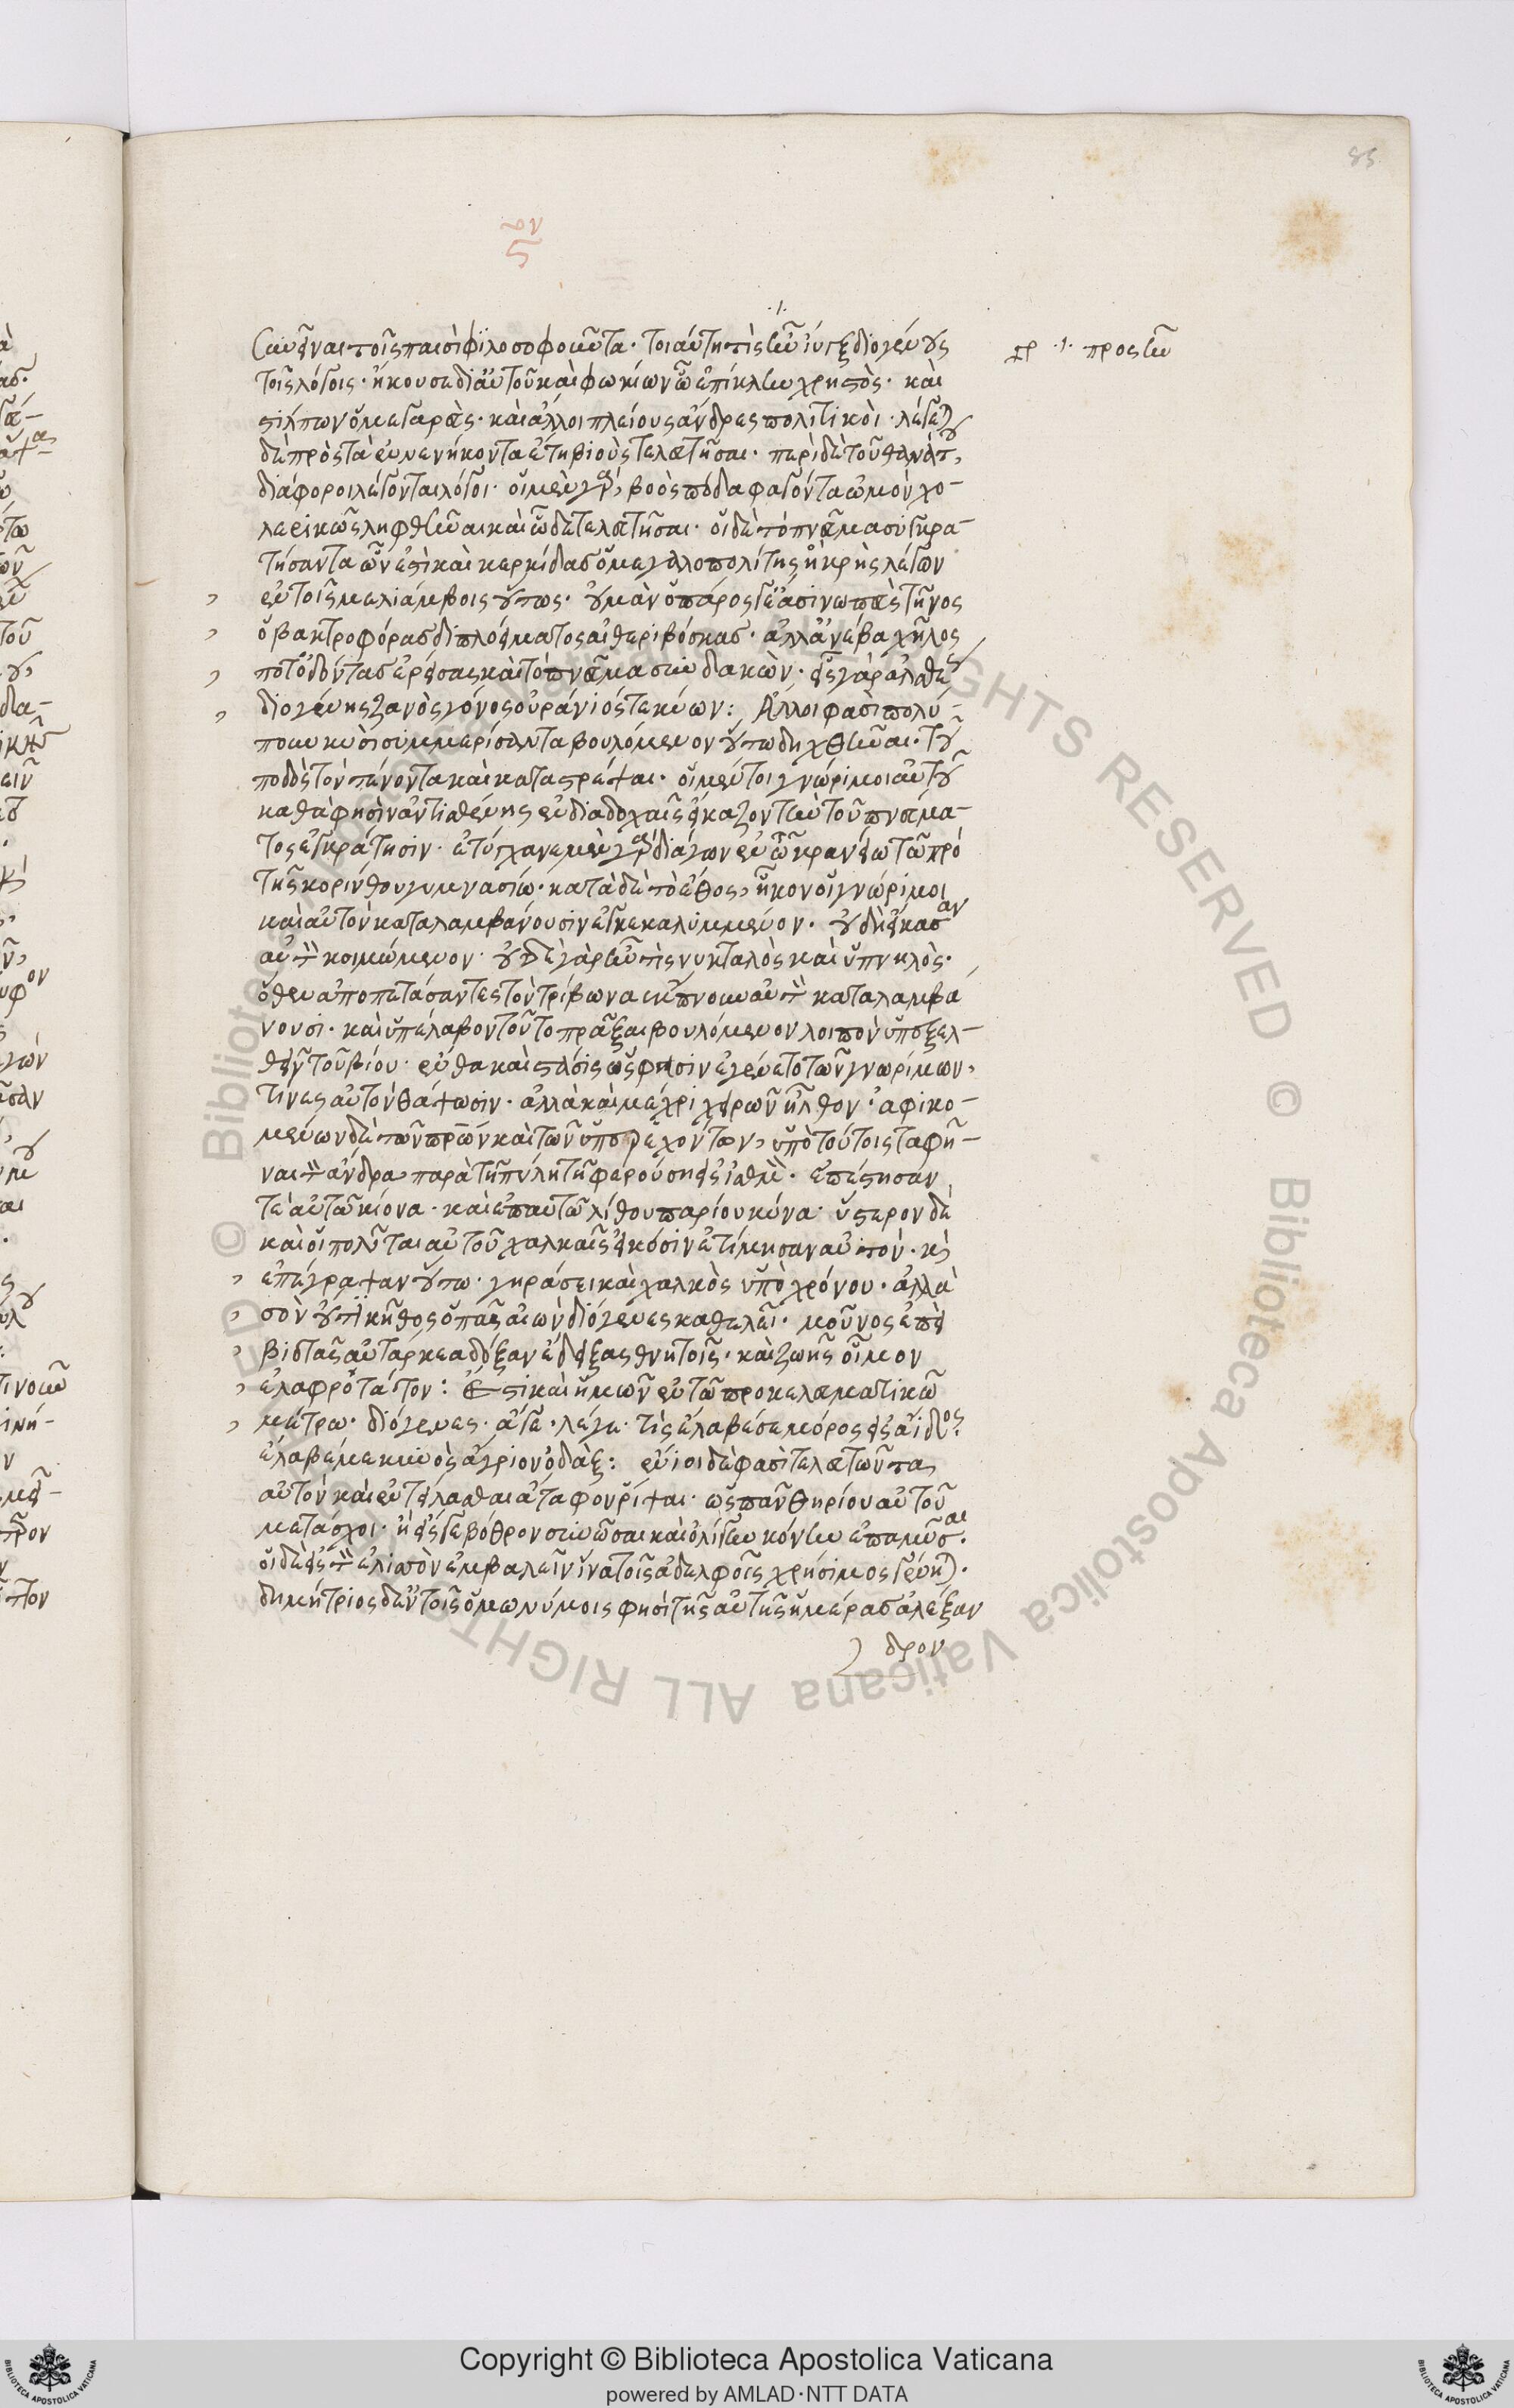 85
ον
ς
./.
συνεῖναι τοῖς παισὶ φιλοσοφοῦντα· τοιαύτη τὶς ἦν ἴυγξ διογένους
γρ ./. προσῆν
τοῖς λόγοις· ἤκουσε δ' αὐτοῦ καὶ φωκίων ὁ ἐπίκλην χρηστὸς· καὶ
στίλπων ὁ μεγαρεὺς· καὶ ἄλλοι πλείους ἄνδρες πολιτικοὶ· λέγεται
δὲ πρὸς τὰ ἐννενήκοντα ἔτη βιοὺς τελευτῆσαι· περὶ δὲ τοῦ θανάτου
διάφοροι λέγονται λόγοι· οἱ μὲν γὰρ, βοὸς πόδα φαγόντα ὠμὸν χο-
λερικῶς ληφθῆναι καὶ ὧδε τελευτῆσαι· οἱ δὲ τὸ πνεῦμα συγκρα-
τήσαντα ὧν ἐστὶ καὶ κερκίδας ὁ μεγαλοπολίτης ἢ κρὴς λέγων
ἐν τοῖς μελιάμβοις οὕτως· οὐ μὰν ὁ πάρος γε ἀσινωπεὺς τῆνος
ὁ βακτροφόρας διπλοείματος αἰθεριβόσκας· ἀλλ' ἀνέβα χῆλος
ποτ' ὀδόντας ἐρείσας καὶ τὸ πνεῦμα συνδακὼν· εἷς γὰρ ἀλαθέως
διογένης ζανὸς γόνος οὐράνιός τε κύων: Ἄλλοι φασὶ πολύ-
πουν κυσὶ συμμερίσασθαι βουλόμενον οὕτω δηχθῆναι· τοῦ
ποδὸς τὸν τένοντα καὶ καταστρέψαι· οἱ μέντοι γνώριμοι αὐτοῦ
καθά φησιν ἀντισθένης ἐν διαδοχαῖς εἴκαζον τὴν τοῦ πνεύμα-
τος ἐγκράτησιν· ἐτύγχανε μὲν γὰρ διάγων ἐν τῶ κρανείω τῶ πρὸ
τῆς κορίνθου γυμνασίω· κατὰ δὲ τὸ ἔθος, ἧκον οἱ γνώριμοι
καὶ αὐτὸν καταλαμβάνουσιν ἐγκεκαλυμμένον· οὐδὲ εἴκασαν
αὐτὸν κοιμώμενον· οὐδὲ γὰρ ἦν τὶς νυκταλὸς καὶ ὑπνηλὸς·
ὅθεν ἀποπετάσαντες τὸν τρίβωνα ἔκπνουν αὐτὸν καταλαμβά
νουσι· καὶ ὑπέλαβον τοῦτο πρᾶξαι βουλόμενον λοιπὸν ὑπεξελ-
θεῖν τοῦ βίου· ἔνθα καὶ στάσις ὥς φησιν ἐγένετο τῶν γνωρίμων,
τίνες αὐτὸν θάψωσιν· ἀλλὰ καὶ μέχρι χειρῶν ἦλθον· ἀφικο-
μένων δὲ τῶν πατέρων καὶ τῶν ὑπερεχόντων, ὑπὸ τούτοις ταφῆ-
ναι τὸν ἄνδρα παρὰ τῆ πύλη τῆ φερούση εἰς ἰσθμὸν· ἐπέστησαν
τὲ αὐτῶ κίονα· καὶ ἐπ' αὐτῶ λίθου παρίου κύνα· ὕστερον δὲ
καὶ οἱ πολῖται αὐτοῦ χαλκαῖς εἰκόσιν ἐτίμησαν αὐτὸν· καὶ
ἐπέγραψαν οὕτω· γηράσκει καὶ χαλκὸς ὑπὸ χρόνου· ἀλλὰ
σὸν οὔτι κῆθος ὁ πᾶς αἰὼν διόγενες καθελεῖ· μοῦνος ἐπεὶ
βιοτᾶς αὐτάρκεα δόξαν ἔδειξας θνητοῖς· καὶ ζωῆς οἶμον
ἐλαφροτάτον: Ἔστι καὶ ἡμῶν ἐν τῶ προκελευσματικῶ
μέτρω· διόγενες· ἄγε· λέγε· τίς ἔλαβέ σε μόρος εἰς ἄϊδος·
ἔλαβέ με κυνὸς ἄγριον ὀδάξ: ἔνιοι δὲ φασὶ τελευτῶντα
αὐτὸν καὶ ἐντείλασθαι ἄταφον ῥίψαι· ὡς πᾶν θηρίον αὐτοῦ
μετάσχοι· ἢ εἴς γε βόθρον συνῶσαι καὶ ὀλίγην κόνιν ἐπαμῆσαι·
οἱ δὲ εἰς τὸν ἐλισσὸν ἐμβαλεῖν ἵνα τοῖς ἀδελφοῖς χρήσιμος γένηται·
δημήτριος δ' ἐν τοῖς ὁμωνύμοις φησὶ τῆς αὐτῆς ἡμέρας ἀλέξαν
δρον